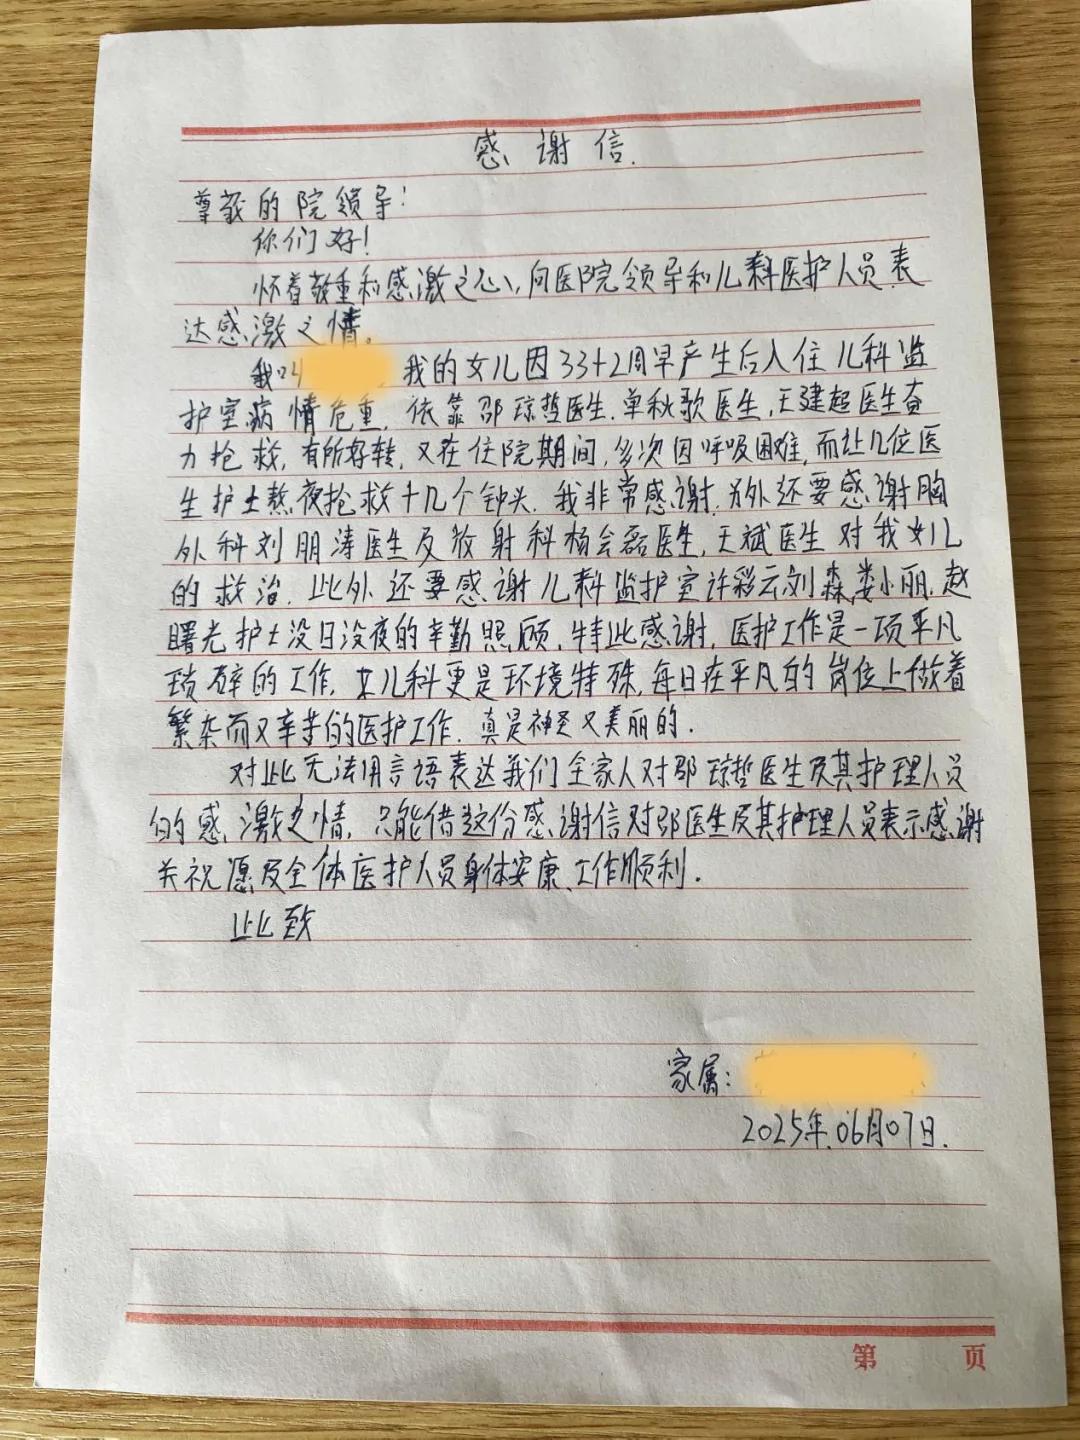 感谢信.
尊敬的院领导!
你们好!
怀着敬重和感激之心,向医院领导和儿科医护人员表
达感激之情。
我叫 我的女儿因33+2周早产生后入住儿科监
护室病情危重,依靠邵琼哲医生.单秋歌医生,王建超医生奋
力抢救,有所好转,又在住院期间,多次因呼吸困难,而让几位医
生护士熬夜抢救十几个钟头.我非常感谢.另外还要感谢胸
外科刘朋涛医生及放射科杨会磊医生,王斌医生对我女儿
的救治.此外还要感谢儿科监护室许彩云,刘森,娄小丽,赵
曙光护士没日没夜的辛勤照顾,特此感谢,医护工作是一项平凡
琐碎的工作,女儿科更是环境特殊,每日在平凡的岗位上做着
繁杂而又辛苦的医护工作.真是神圣又美丽的.
对此无法用言语表达我们全家人对邵琼哲医生及其护理人员
的感激之情,只能借这份感谢信对邵医生及其护理人员表示感谢
关祝愿及全体医护人员身体安康、工作顺利.
此致
家属:
2025年06月07日.
第 页